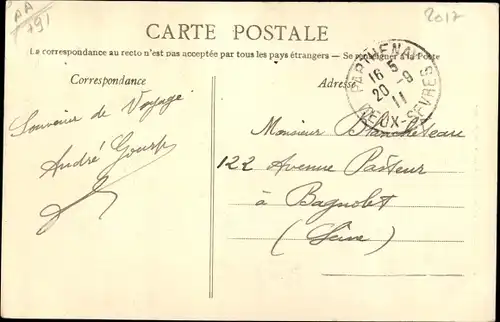 AA
791
2017
CARTE POSTALE
La correspondance au recto n'est pas acceptée par tous les pays étrangers — Se renseigner à la Poste
Correspondance
Adresse
PARTHENAY
16 5
20 -9
11
DEUX-SÈVRES
Souvenir de Voyage
André
Monsieur Blancheteau
122 Avenue Pasteur
à Bagnolet
(Seine)